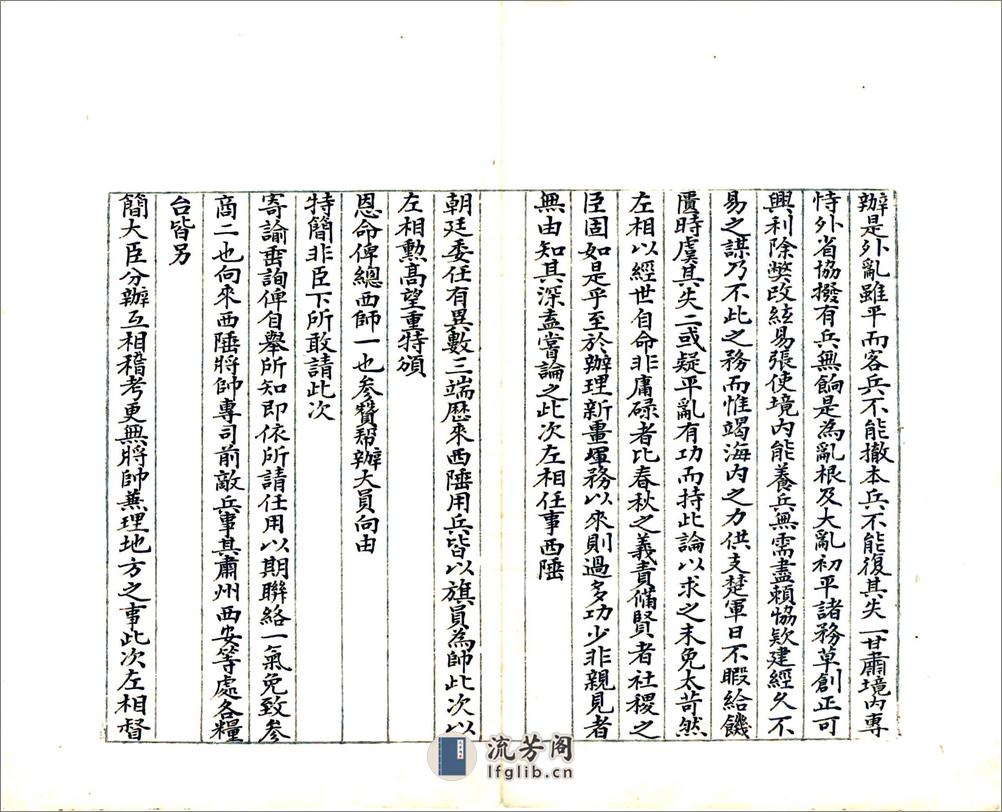 辦是外亂雖平而客兵不能撤本兵不能復其失一甘肅境內專
恃外省協撥有兵無餉是為亂根及大亂初平諸務草創正可
興利除弊改絃易張使境內能養兵無需盡賴協欵建經久不
易之謀乃不此之務而惟竭海內之力供支楚軍日不暇給饑
匱時虞其失二或疑平亂有功而持此論以求之未免太苛然
左相以經世自命非庸碌者比春秋之義責備賢者社稷之
臣固如是乎至於辦理新畺軍務以來則過多功少非親見者
無由知其深盍嘗論之此次左相任事西陲
朝廷委任有異數三端歷來西陲用兵皆以旗員為帥此次以
左相勲高望重特頒
恩命俾總西師一也參贊幫辦大員向由
特簡非臣下所敢請此次
寄諭垂詢俾自舉所知即依所請任用以期聯絡一氣免致參
商二也向來西陲將帥專司前敵兵事其肅州西安等處各糧
台皆另
簡大臣分辦互相稽考更無將帥兼理地方之事此次左相督
流芳阁
lfglib.cn